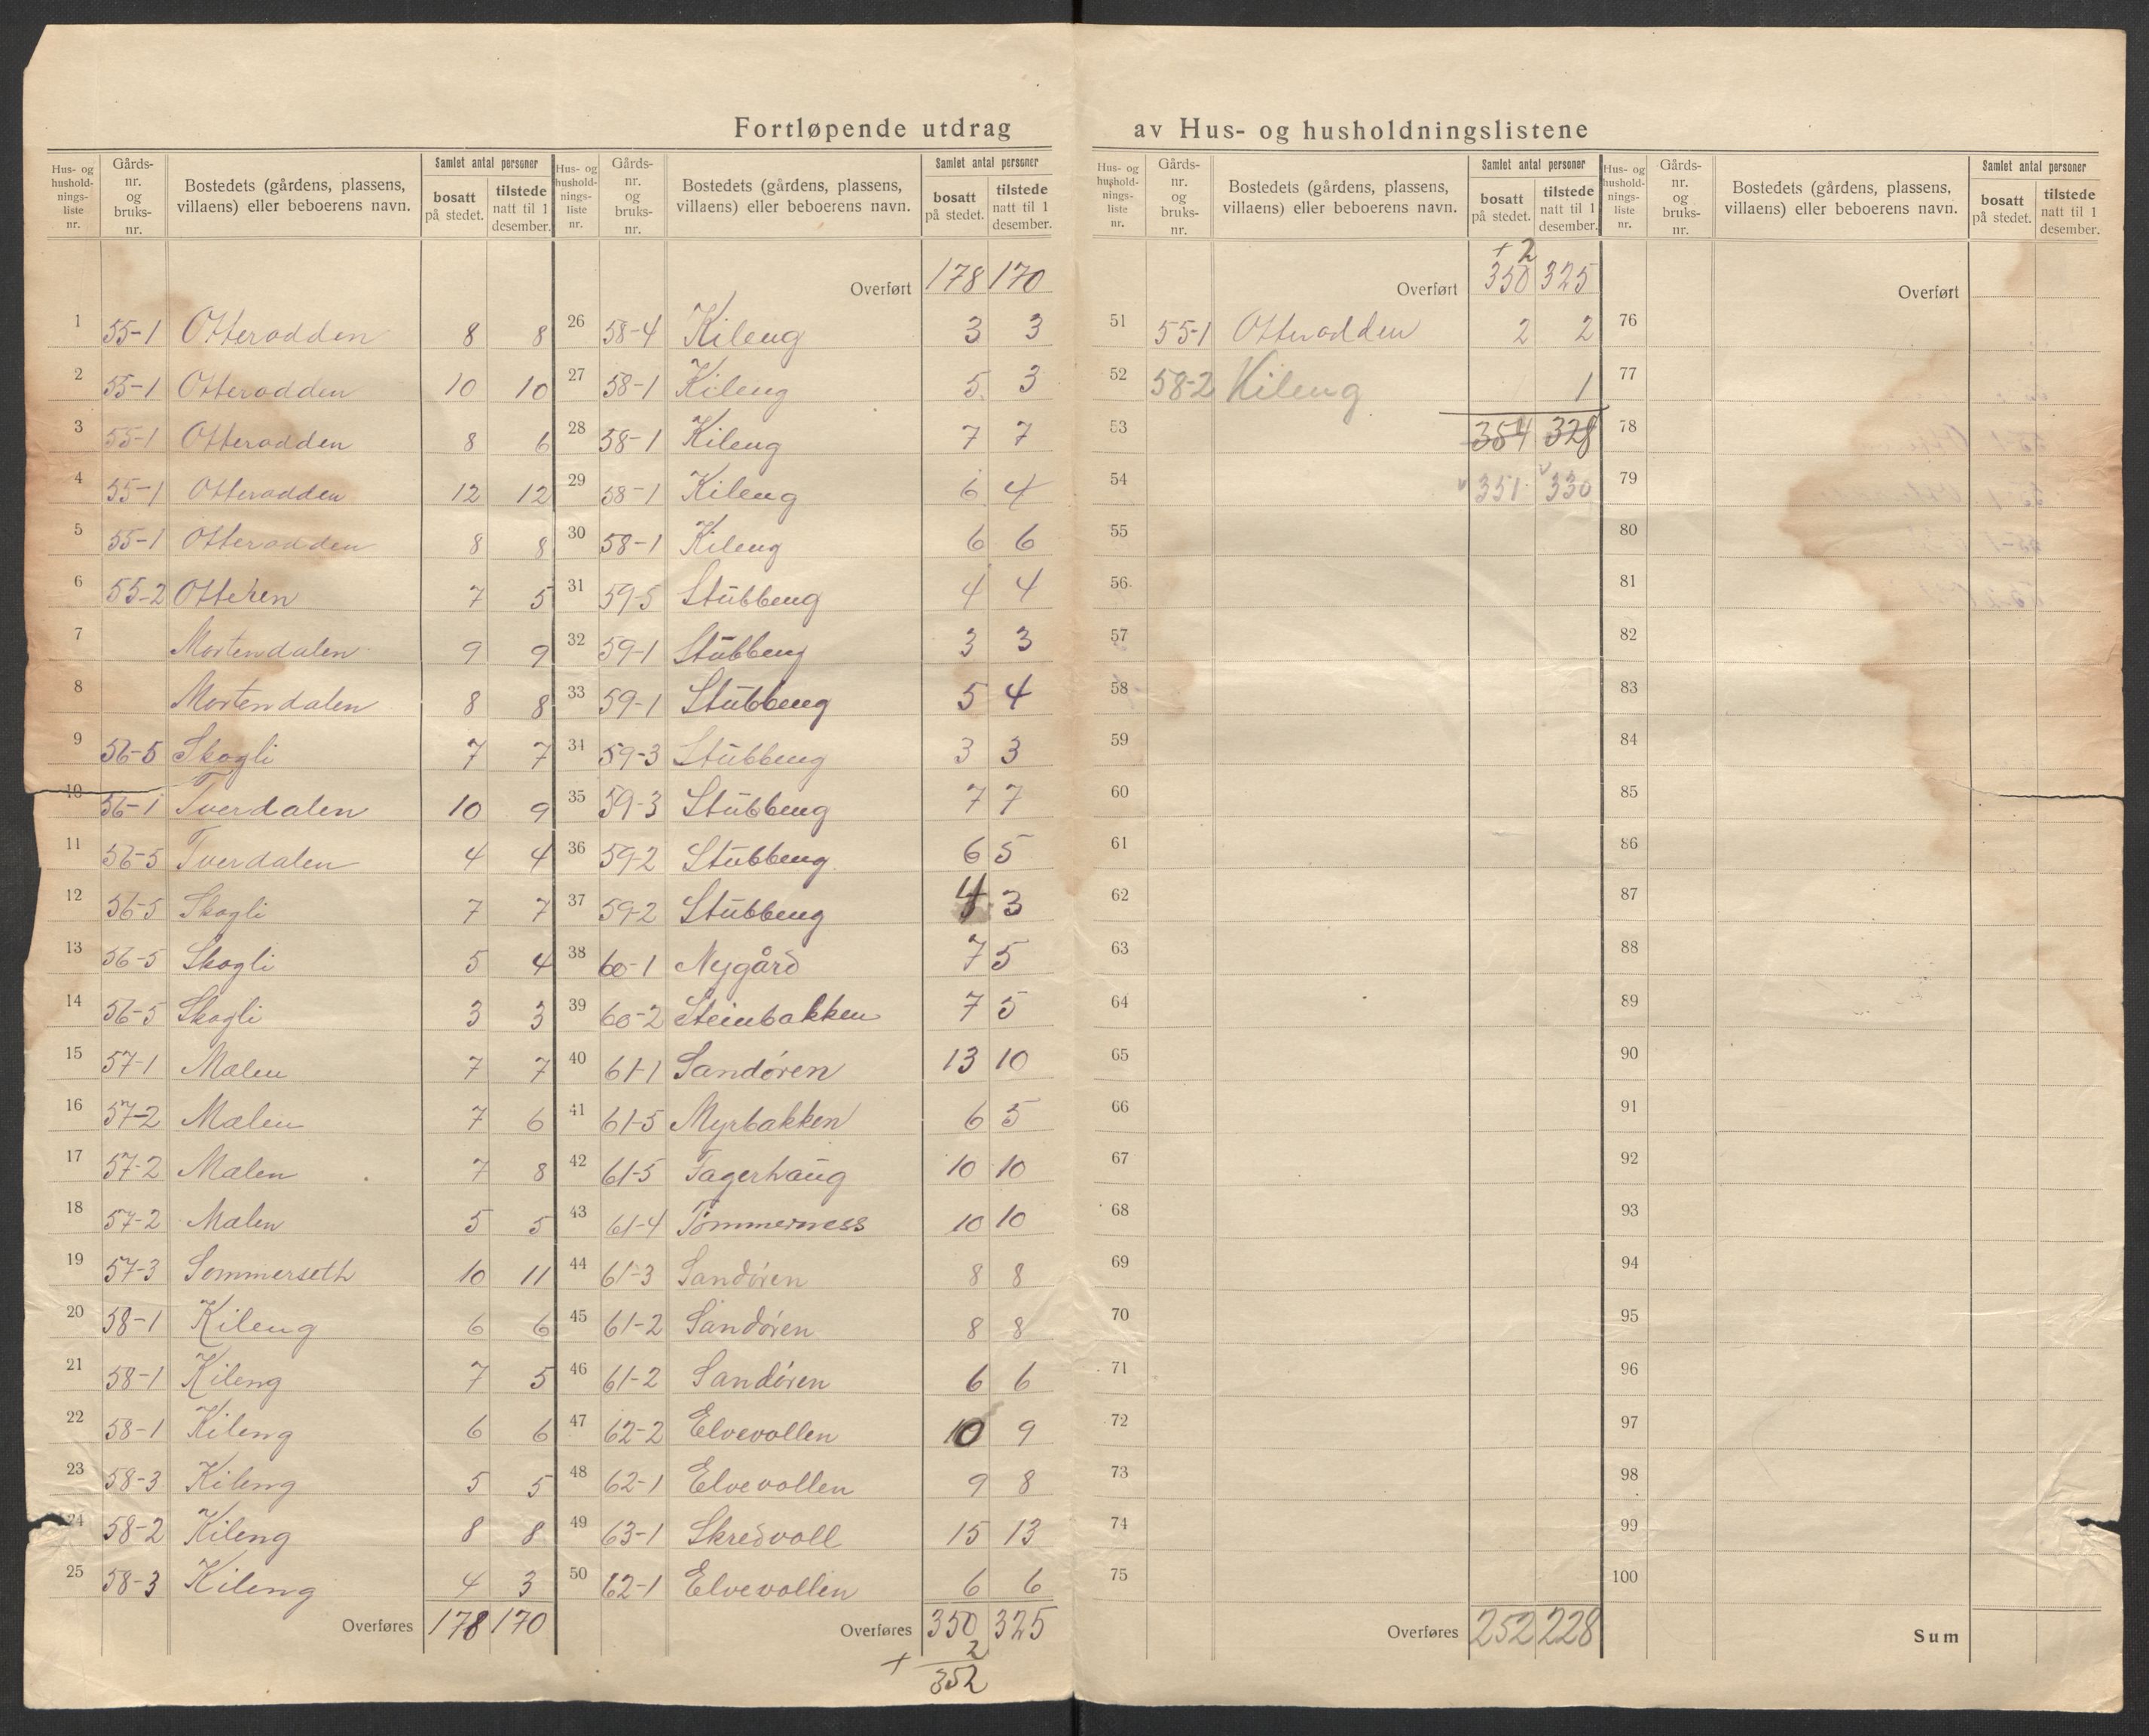 Fortløpende utdrag av Hus- og husholdningslistene
Hus- og hushold-nings-liste nr. | Gårds-nr. og bruks-nr. | Bostedets (gårdens, plassens, villaens) eller beboerens navn. | Samlet antal personer | bosatt på stedet. | tilstede natt til 1 desember.
1 55-1 Otterodden 8 8
2 55-1 Otterodden 10 10
3 55-1 Otterodden 8 6
4 55-1 Otterodden 12 12
5 55-1 Otterodden 8 8
6 55-2 Otteren 7 5
7 Mortendalen 9 9
8 Mortendalen 8 8
9 56-5 Skogli 7 7
10 56-1 Tverdalen 10 9
11 56-5 Tverdalen 4 4
12 56-5 Skogli 7 7
13 56-5 Skogli 5 4
14 56-5 Skogli 3 3
15 57-1 Mælen 7 7
16 57-2 Mælen 7 6
17 57-2 Mælen 7 8
18 57-2 Mælen 5 5
19 57-3 Sommerseth 10 11
20 58-1 Kileng 6 6
21 58-1 Kileng 7 5
22 58-1 Kileng 6 6
23 58-3 Kileng 5 5
24 58-2 Kileng 8 8
25 58-3 Kileng 4 3
Overføres 178 170
Hus- og hushold-nings-liste nr. | Gårds-nr. og bruks-nr. | Bostedets (gårdens, plassens, villaens) eller beboerens navn. | Samlet antal personer | bosatt på stedet. | tilstede natt til 1 desember.
Overført 178 170
26 58-4 Kileng 3 3
27 58-1 Kileng 5 3
28 58-1 Kileng 7 7
29 58-1 Kileng 6 4
30 58-1 Kileng 6 6
31 59-5 Stubbeng 4 4
32 59-1 Stubbeng 3 3
33 59-1 Stubbeng 5 4
34 59-3 Stubbeng 3 3
35 59-3 Stubbeng 7 7
36 59-2 Stubbeng 6 5
37 59-2 Stubbeng 4 3
38 60-1 Nygård 7 5
39 60-2 Steinbakken 7 5
40 61-1 Sandøren 13 10
41 61-5 Myrbakken 6 5
42 61-5 Fagerhaug 10 10
43 61-4 Tømmerness 10 10
44 61-3 Sandøren 8 8
45 61-2 Sandøren 8 8
46 61-2 Sandøren 6 6
47 62-2 Elvevollen 10 9
48 62-1 Elvevollen 9 8
49 63-1 Skredvoll 15 13
50 62-1 Elvevollen 6 6
Overføres 350 325
+ 2
352
Hus- og hushold-nings-liste nr. | Gårds-nr. og bruks-nr. | Bostedets (gårdens, plassens, villaens) eller beboerens navn. | Samlet antal personer | bosatt på stedet. | tilstede natt til 1 desember.
+2
Overført 350 325
51 55-1 Otterodden 2 2
52 58-2 Kileng 1
53 354 328
54 351 330
55
56
57
58
59
60
61
62
63
64
65
66
67
68
69
70
71
72
73
74
75
Overføres 252 228
Hus- og hushold-nings-liste nr. | Gårds-nr. og bruks-nr. | Bostedets (gårdens, plassens, villaens) eller beboerens navn. | Samlet antal personer | bosatt på stedet. | tilstede natt til 1 desember.
Overført
76
77
78
79
80
81
82
83
84
85
86
87
88
89
90
91
92
93
94
95
96
97
98
99
100
Sum